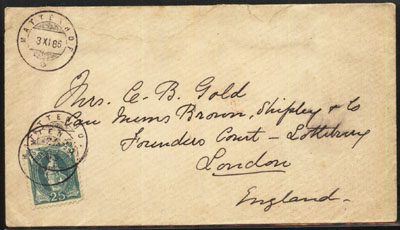 MATTENHOF
3 XI 86
Mrs. C. B. Gold
Care Messrs Brown, Shipley & Co
Founders Court – Lothbury
London
England –
MATTENHOF
25